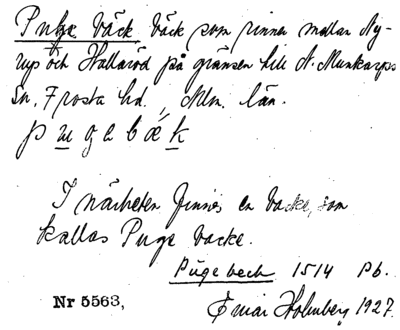 Puge bäck, bäck som rinner mellan Ny-
rup och Hallaröd på gränsen till N. Munkarps
Sn. Frosta hd, Mlm. län.
p u g a b æ k
I närheten finnes en backe, som
kallas Puge backe.
Pugebeck 1514 Pb.
Nr 5563, Einar Holmberg 1927.